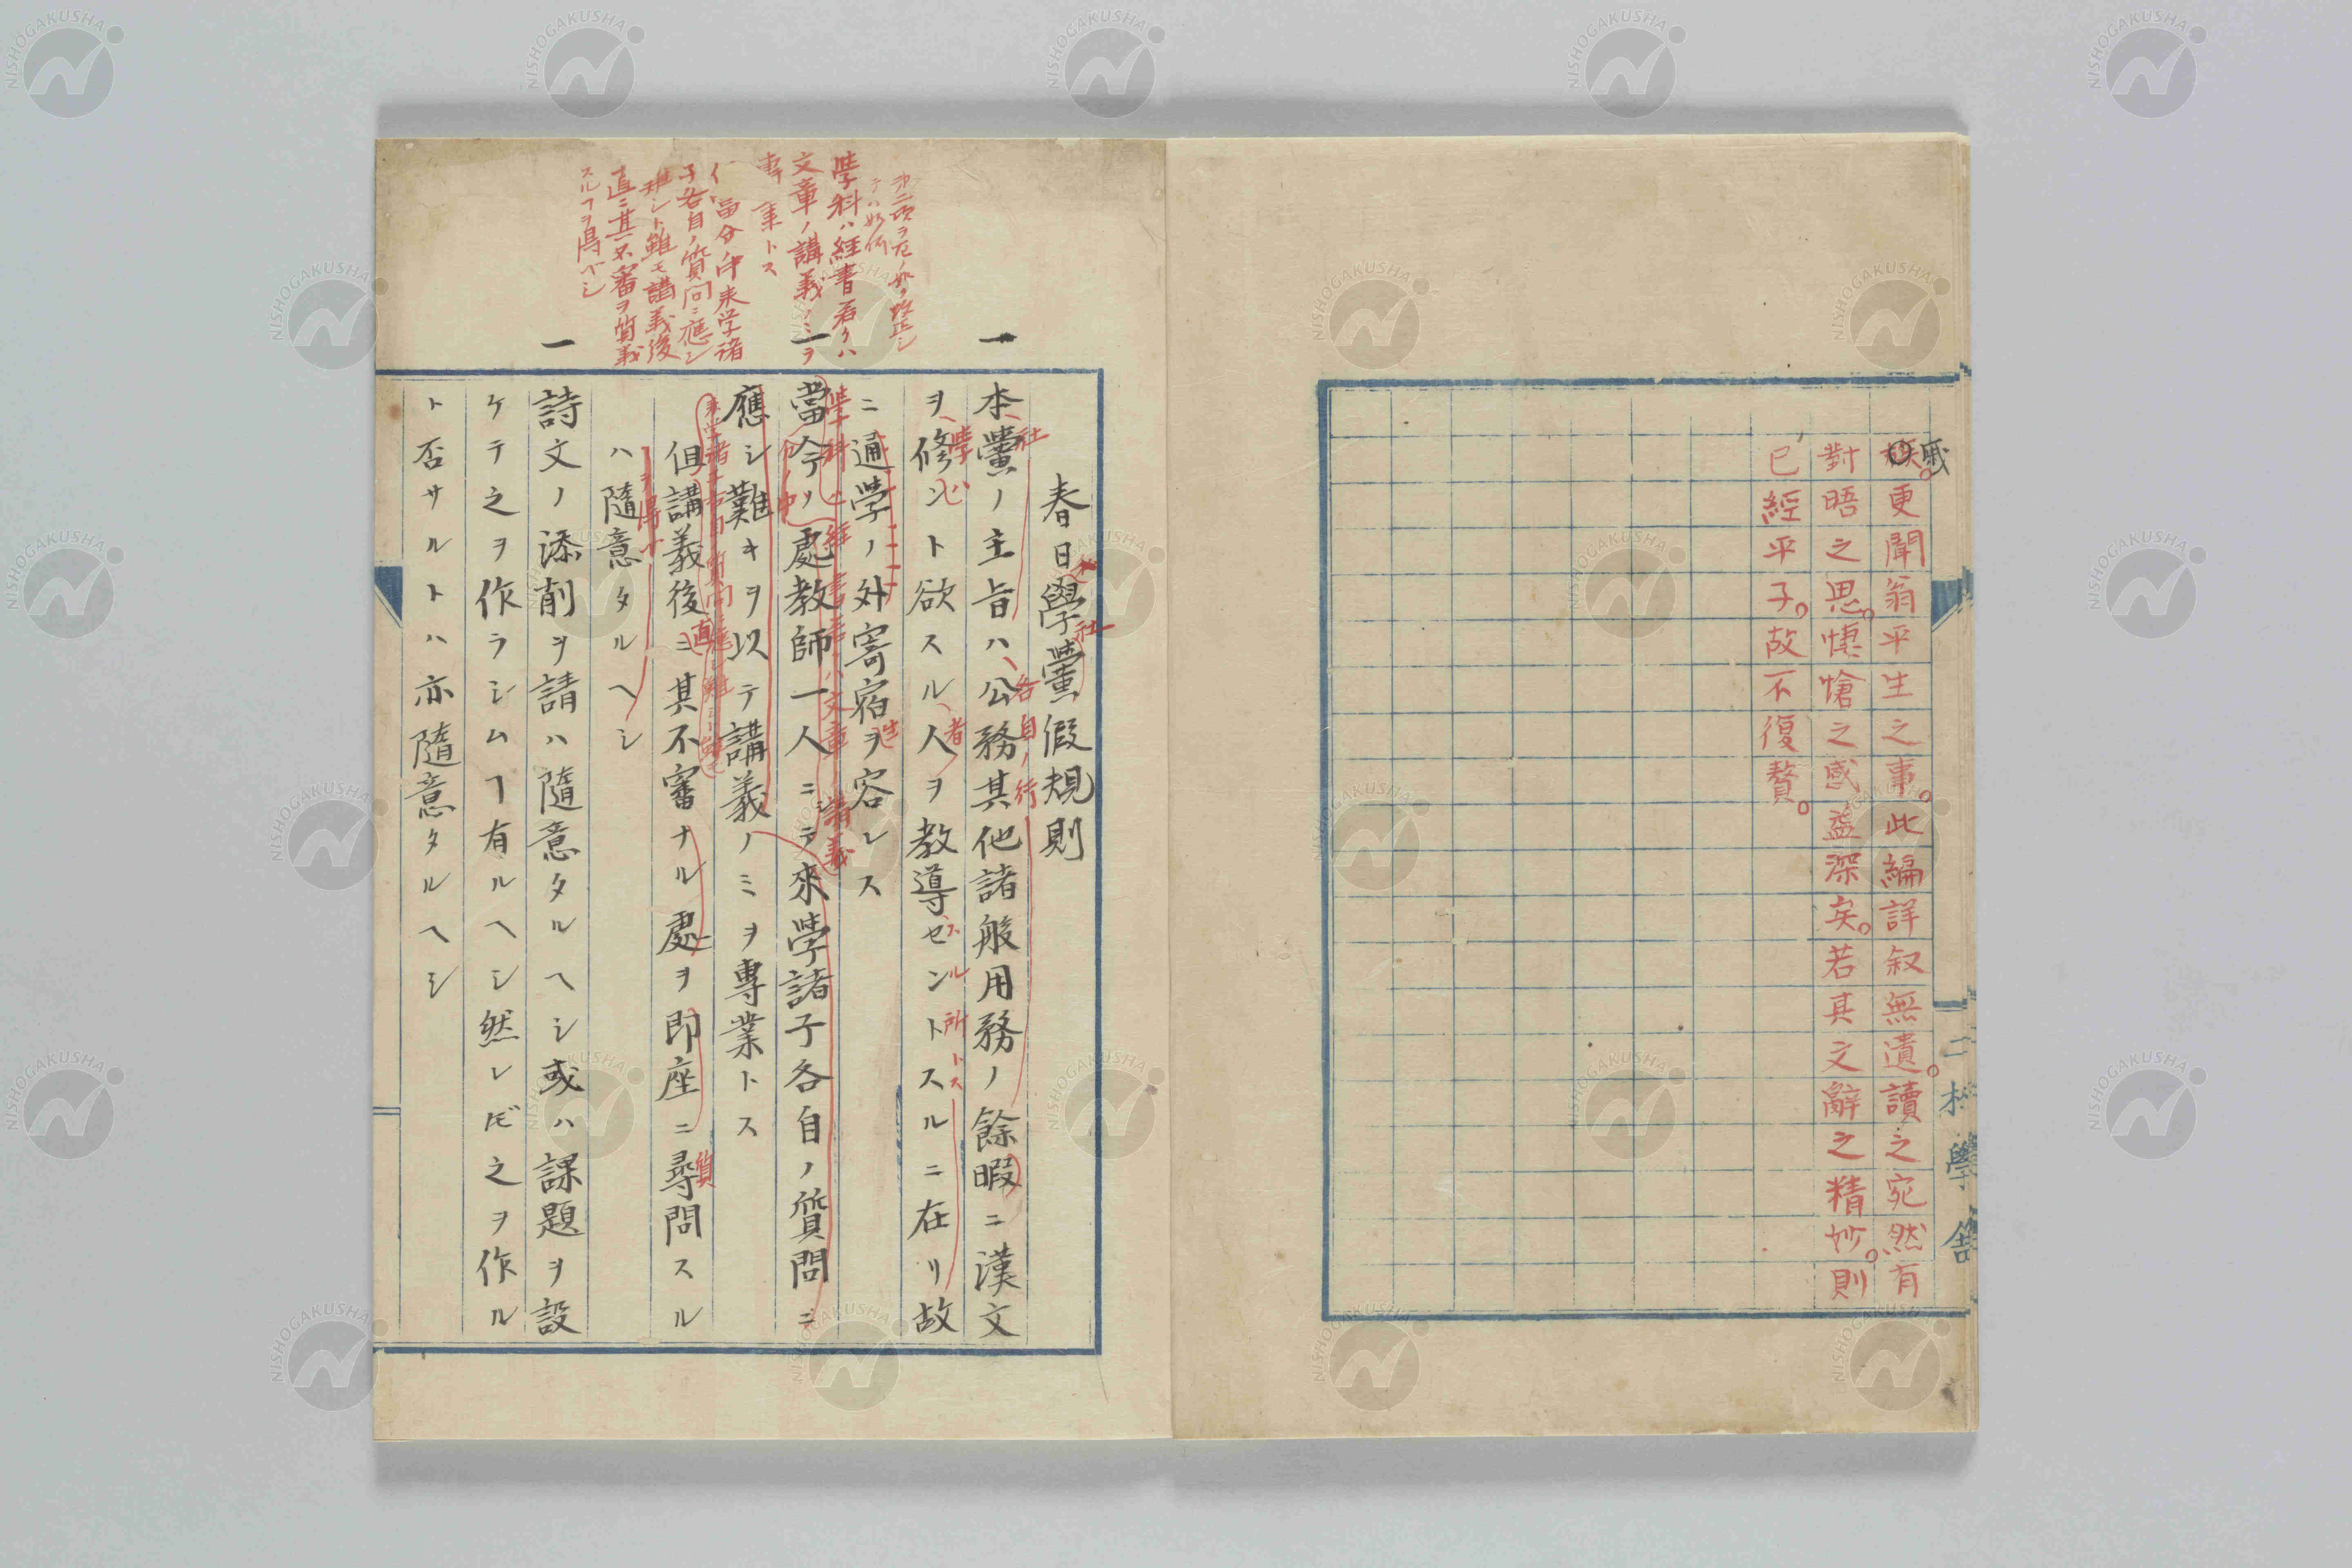 槪更聞翁平生之事。此編詳叙無遺。讀之宛然有
戚
對晤之思。悽愴之感益深矣。若其文辭之精妙。則
已經平子。故不復贅。
二松學舍
春日學黌假規則
社
一 本黌ノ主旨ハ公務其他諸般用務ノ餘暇ニ漢文
社
各自ノ行
ヲ修ント欲スル人ヲ教導セントスルニ在リ故
學ハ
者
スル所トス
ニ通學ノ外寄宿ヲ容レス
生
一 當今ノ處教師一人ニテ來學諸子各自ノ質問ニ
學科ハ經書若クハ文章ノ講義
應シ難キヲ以テ講義ノミヲ專業トス
但講義後ニ其不審ナル處ヲ即座ニ尋問スル
直
質
ハ隨意タルヘシ
ヲ得ヘ
一 詩文ノ添削ヲ請ハ隨意タルヘシ或ハ課題ヲ設
ケテ之ヲ作ラシムヿ有ルヘシ然レ𪜈之ヲ作ル
ト否サルトハ亦隨意タルヘシ
第二項ヲ左ノ如ク改正シ
テハ如何
學科ハ経書若クハ
文章ノ講義ノミヲ
專業トス
但當分ノ中来学諸
子各自ノ質問ニ應シ
難シト雖モ講義後
直ニ其不審ヲ質義
スルヿヲ得ベシ
NISHOGAKUSHA